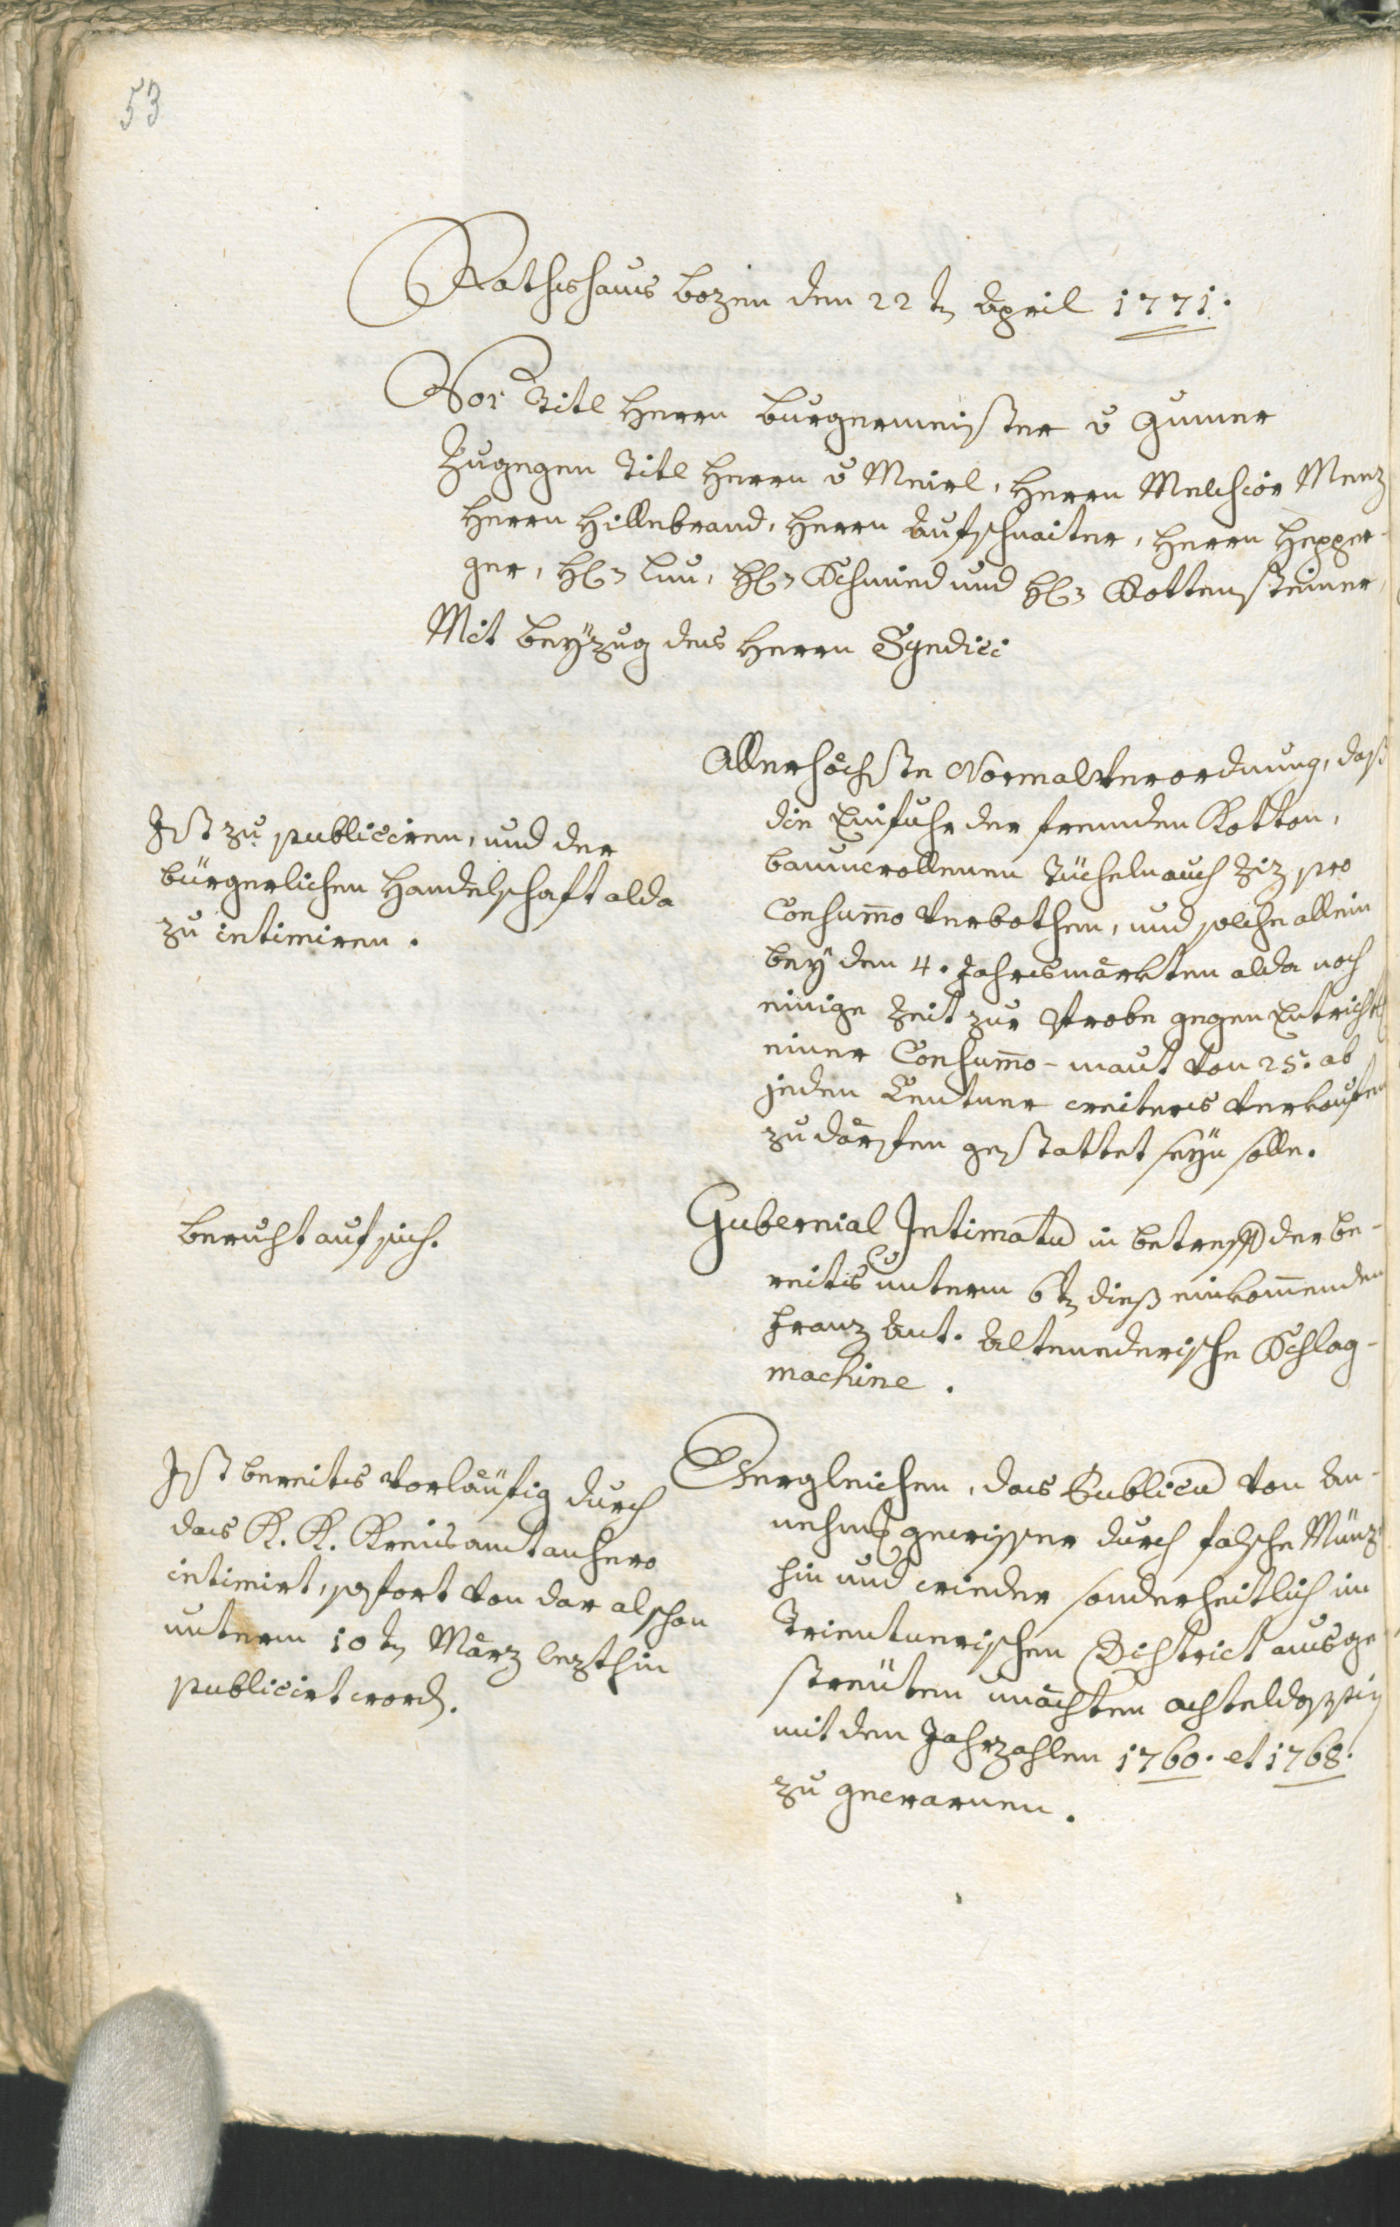 53
Rathshaus bozen den 22 tn April 1771.
Vor Titl Herrn burgermeister v Gumer
Zugegen Titl Herrn v Meirl, Herrn Melchior Menz
Herrn Hillebrand, Herrn Aufschnaiter, Herrn Hepper-
ger, H: Luu, H: Schmied und H: Kottensteiner,
Mit beÿzug des Herrn Syndici
Ist zu publiciren, und der
bürgerlichen Handelschaft alda
zu intimiren.
Allerhöchste Normalverordnung, daß
die Einfuhr der fremden Kotton,
baumwollenen Tücheln auch Ziz pro
Consum̄o verbothen, und solche allein
beÿ den 4. Jahrsmärkten alda noch
einige Zeit zur Probe gegen Entricht
einer Consum̄o-maut von 25. ab
jeden Centner weiters verkaufen
zu därfen gestattet seÿn solle.
beruht auf sich.
Gubernial Intimatu in betreff der be-
reits unterm 6tn dieß einkom̄enden
Franz Ant. Altenederische Schlag-
machine.
Ist bereits vorläufig durch
das K. K. Kreisamt anhero
intimirt, sofort von dar alschon
unterm 10 tn März lezthin
publicirt word.
Dergleichen, das Publicu von An-
nehm gewisser durch falsche Münz
hin und wieder sonderheitlich im
Trientnerischen District ausge-
streüten unächten achteldoppien
mit den Jahrzahlen 1760. et 1768.
zu gewarnen.